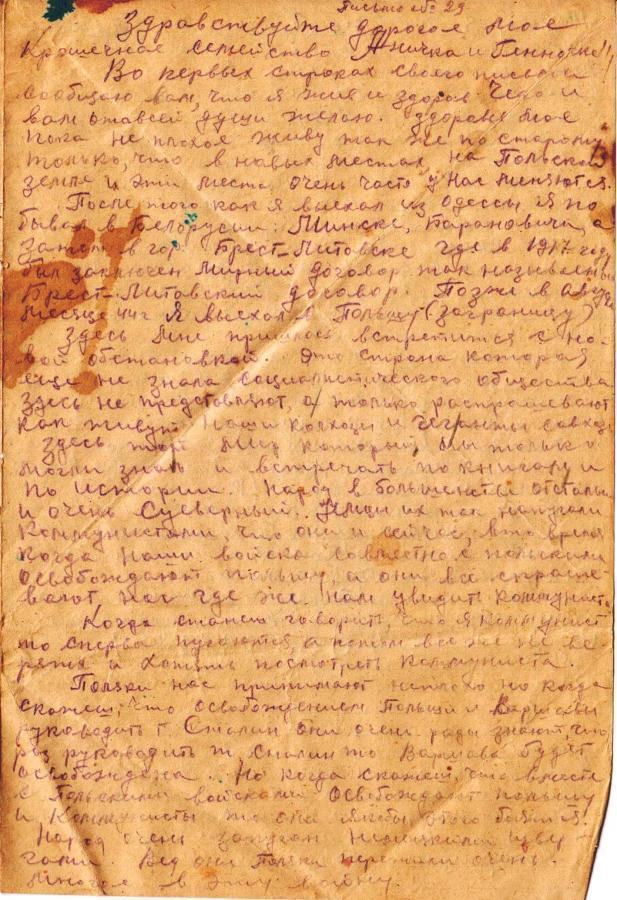 Письмо № 29
Здравствуйте дорогое мое
Крошечное семейство Аничка и Генночка!
Во первых строках своего письма
сообщаю вам, что я жив и здоров чего и
вам от всей души желаю. Здоровье мое
пока не плохое живу так же по старому
только, что в новых местах на Польской
земле и эти места очень часто у нас меняются.
После того как я выехал из Одессы я по
бывал в Белорусии: Минске, Барановичи, а
затем в гор. Брест-Литовске где в 1917 году
был заключен мирный договор так называемый
Брест-Литовский договор. Позже в Августе
месяце 44 г я выехал в Польшу (заграницу)
Здесь мне пришлось встретится с но-
вой обстановкой. Это страна которая
еще не знала социалистического общества
здесь не представляют, а только распрашевают
как живут наши колхозы и гегианты совхозы
Здесь тот мир который мы только
могли знать и встречать по книгам и
по истории. Народ в большенстве отсталый
и очень суеверный. Немцы их так напугали
Коммунистами, что они и сейчас, в то время
когда наши войска совместно с польскими
освобождают польшу, а они все спраше-
вают нас где же нам увидить коммуниста
Когда станеш говорить, что я коммунист
то сперва пугаются, а потом все же не ве-
рятся и хотять посмотреть коммуниста.
Поляки нас принимают неплохо но когда
скажеш, что освобождением Польши и Варшавы
руководить т. Сталин они очень рады знают, что
раз руководить т. Сталин то Варшава будет
освобождена. Но когда скажеш, что вместе
с Польскими войсками освобождают польшу
и Коммунисты то они якобы этого боятся!
Народ очень запуган немецкими
Вед они Поляки пережили очень
многое в эту войну.